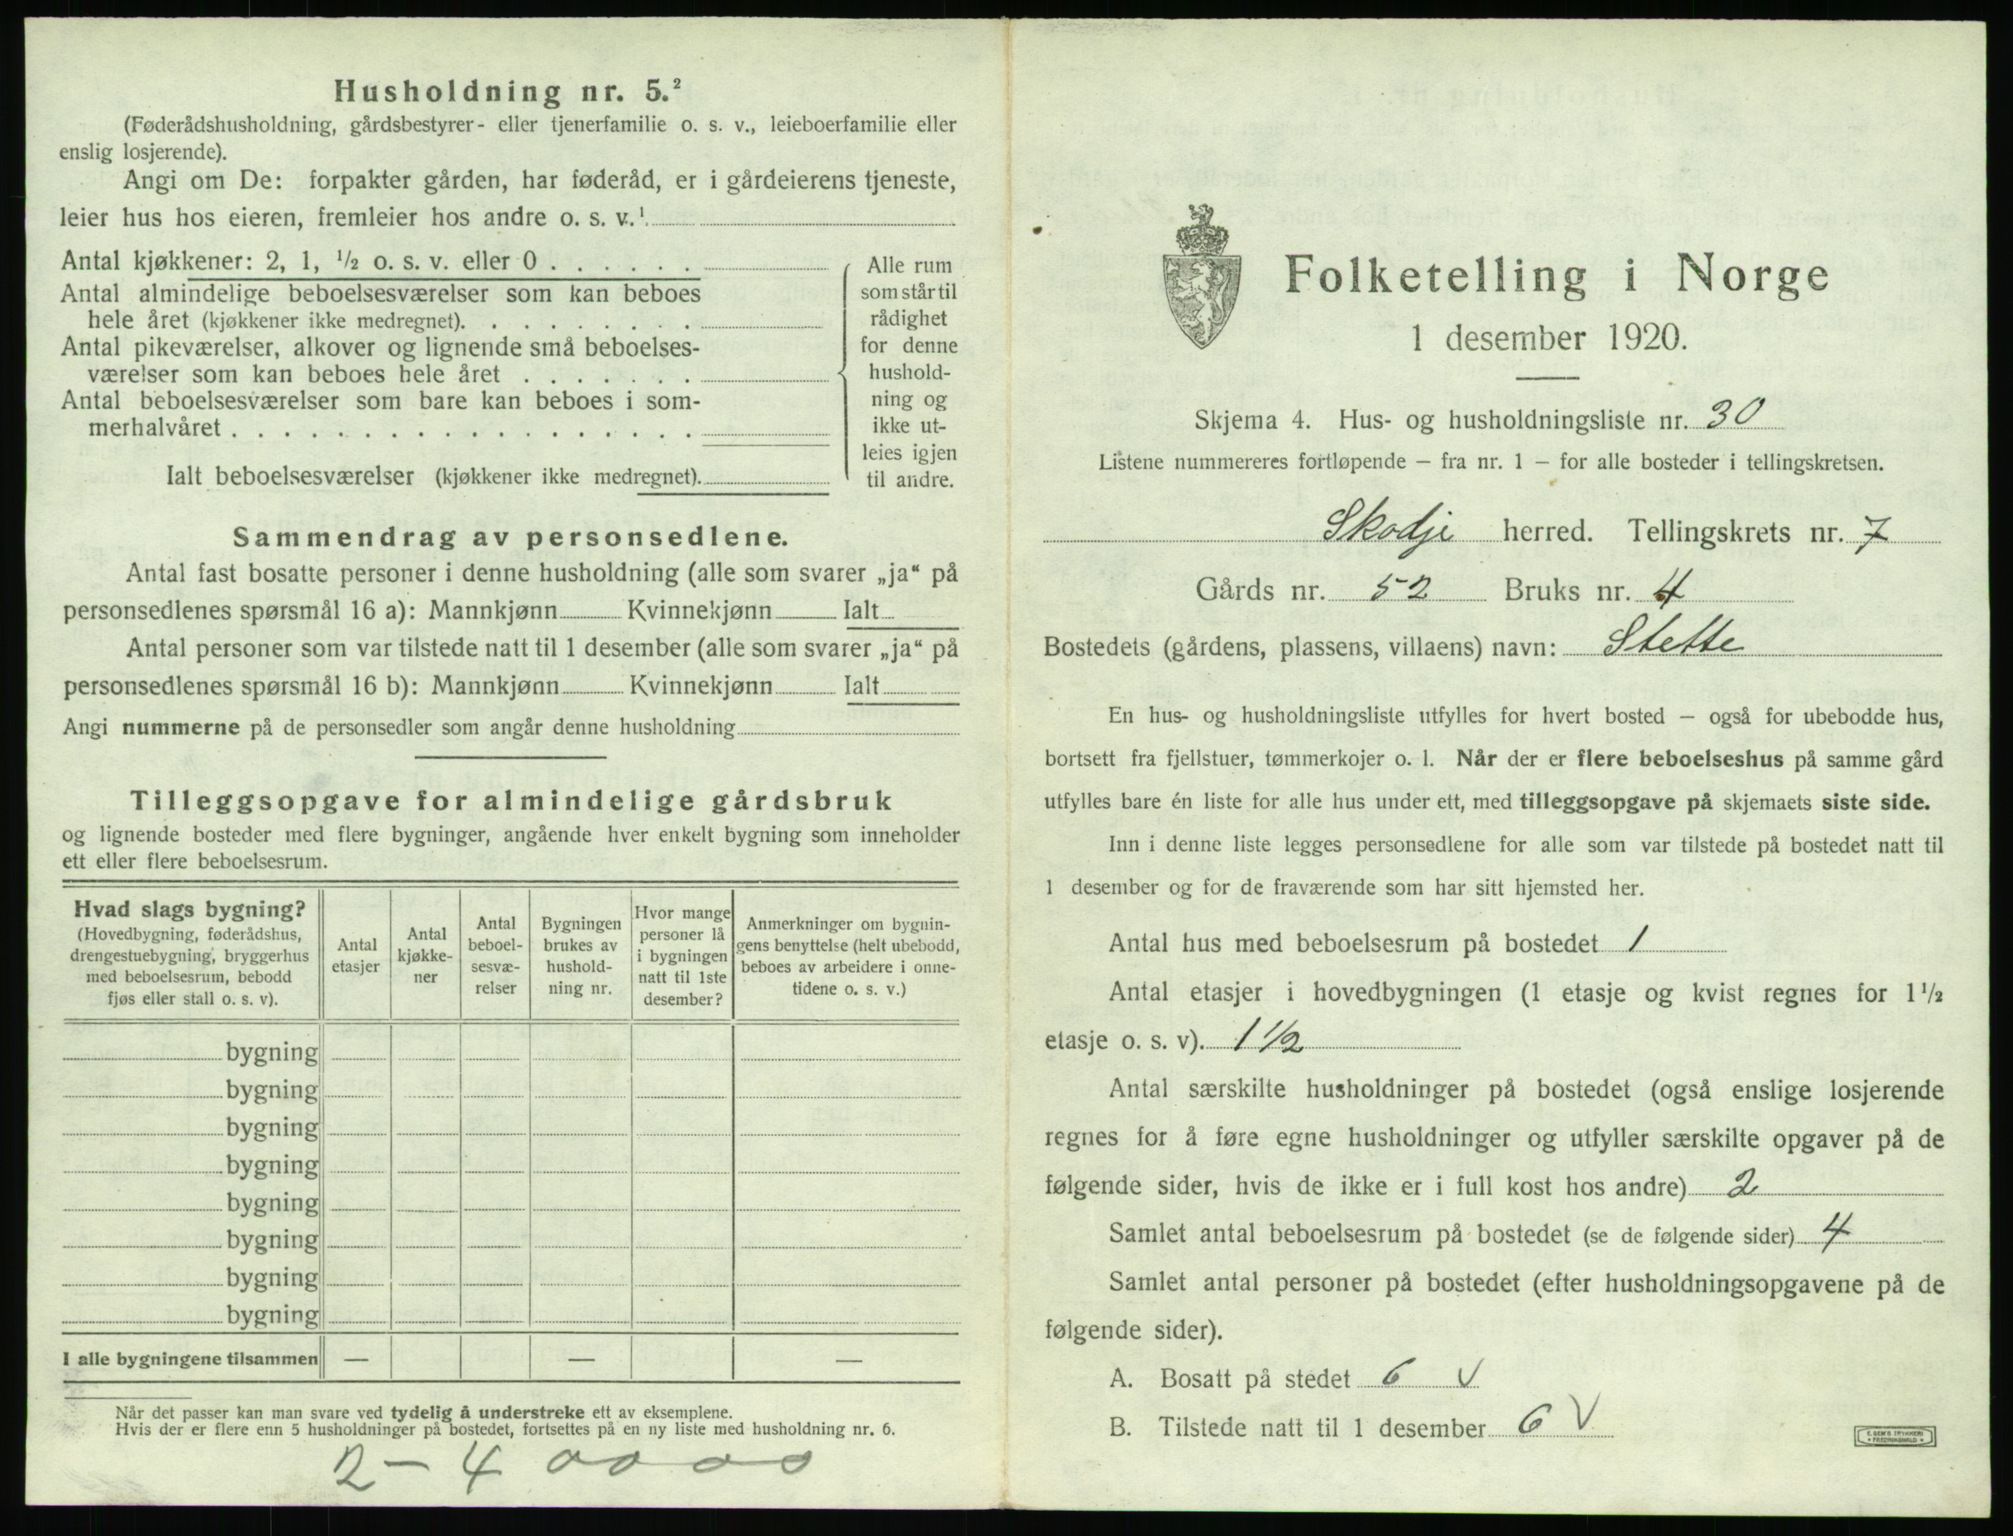 Husholdning nr. 5.²
(Føderådshusholdning, gårdsbestyrer- eller tjenerfamilie o. s. v., leieboerfamilie eller
enslig losjerende).
Angi om De: forpakter gården, har føderåd, er i gårdeierens tjeneste,
leier hus hos eieren, fremleier hos andre o. s. v.¹
Antal kjøkkener: 2, 1, ½ o. s. v. eller 0 . . . . . .
Antal almindelige beboelsesværelser som kan beboes
hele året (kjøkkener ikke medregnet). . . . . . . . .
Antal pikeværelser, alkover og lignende små beboelses-
værelser som kan beboes hele året . . . . . . .
Antal beboelsesværelser som bare kan beboes i som-
merhalvåret . . . . . . . . . . . . . . . . . .
Ialt beboelsesværelser (kjøkkener ikke medregnet).
Alle rum
som står til
rådighet
for denne
hushold-
ning og
ikke ut-
leies igjen
til andre.
Sammendrag av personsedlene.
Antal fast bosatte personer i denne husholdning (alle som svarer „ja“ på
personsedlenes spørsmål 16 a): Mannkjønn Kvinnekjønn Ialt
Antal personer som var tilstede natt til 1 desember (alle som svarer „ja“ på
personsedlenes spørsmål 16 b): Mannkjønn Kvinnekjønn Ialt
Angi nummerne på de personsedler som angår denne husholdning
Tilleggsopgave for almindelige gårdsbruk
og lignende bosteder med flere bygninger, angående hver enkelt bygning som inneholder
ett eller flere beboelsesrum.
Hvad slags bygning?
(Hovedbygning, føderådshus,
drengestuebygning, bryggerhus
med beboelsesrum, bebodd
fjøs eller stall o. s. v).
Antal
etasjer
Antal
kjøkke-
ner
Antal
beboel-
sesvæ-
relser
Bygningen
brukes av
hushold-
ning nr.
Hvor mange
personer lå
i bygningen
natt til 1ste
desember?
Anmerkninger om bygnin-
gens benyttelse (helt ubebodd,
beboes av arbeidere i onne-
tidene o. s. v.)
bygning
bygning
bygning
bygning
bygning
bygning
bygning
bygning
I alle bygningene tilsammen — — —
Når det passer kan man svare ved tydelig å understreke ett av eksemplene.
Hvis der er flere enn 5 husholdninger på bostedet, fortsettes på en ny liste med husholdning nr. 6.
2 - 4 00 00
Folketelling i Norge
1 desember 1920.
Skjema 4. Hus- og husholdningsliste nr. 30
Listene nummereres fortløpende – fra nr. 1 – for alle bosteder i tellingskretsen.
Skodje herred. Tellingskrets nr. 7
Gårds nr. 52 Bruks nr. 4
Bostedets (gårdens, plassens, villaens) navn: Stette
En hus- og husholdningsliste utfylles for hvert bosted – også for ubebodde hus,
bortsett fra fjellstuer, tømmerkojer o. l. Når der er flere beboelseshus på samme gård
utfylles bare én liste for alle hus under ett, med tilleggsopgave på skjemaets siste side.
Inn i denne liste legges personsedlene for alle som var tilstede på bostedet natt til
1 desember og for de fraværende som har sitt hjemsted her.
Antal hus med beboelsesrum på bostedet 1
Antal etasjer i hovedbygningen (1 etasje og kvist regnes for 1½
etasje o. s. v). 1½
Antal særskilte husholdninger på bostedet (også enslige losjerende
regnes for å føre egne husholdninger og utfyller særskilte opgaver på de
følgende sider, hvis de ikke er i full kost hos andre) 2
Samlet antal beboelsesrum på bostedet (se de følgende sider) 4
Samlet antal personer på bostedet (efter husholdningsopgavene på de
følgende sider).
A. Bosatt på stedet 6 V
B. Tilstede natt til 1 desember 6 V